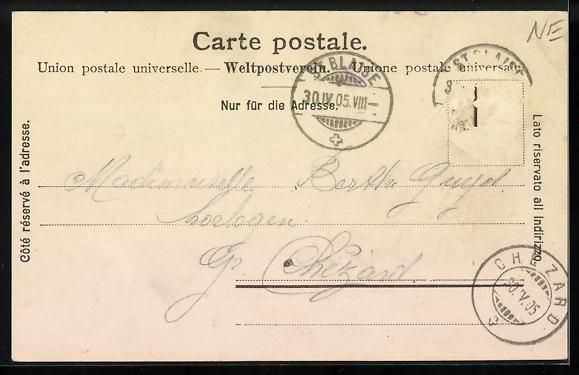 NE
Carte postale.
Union postale universelle. — Weltpostverein. — Unione postale universale
Nur für die Adresse.
ST BLAISE
30.IV.05.VIII—
ST BLAISE
3
Côté réservé à l'adresse.
Lato riservato all Indirizzo
Mademoiselle Berthe Guyot
Horloger.
Gd. Chézard.
CHÉZARD
30.IV.05